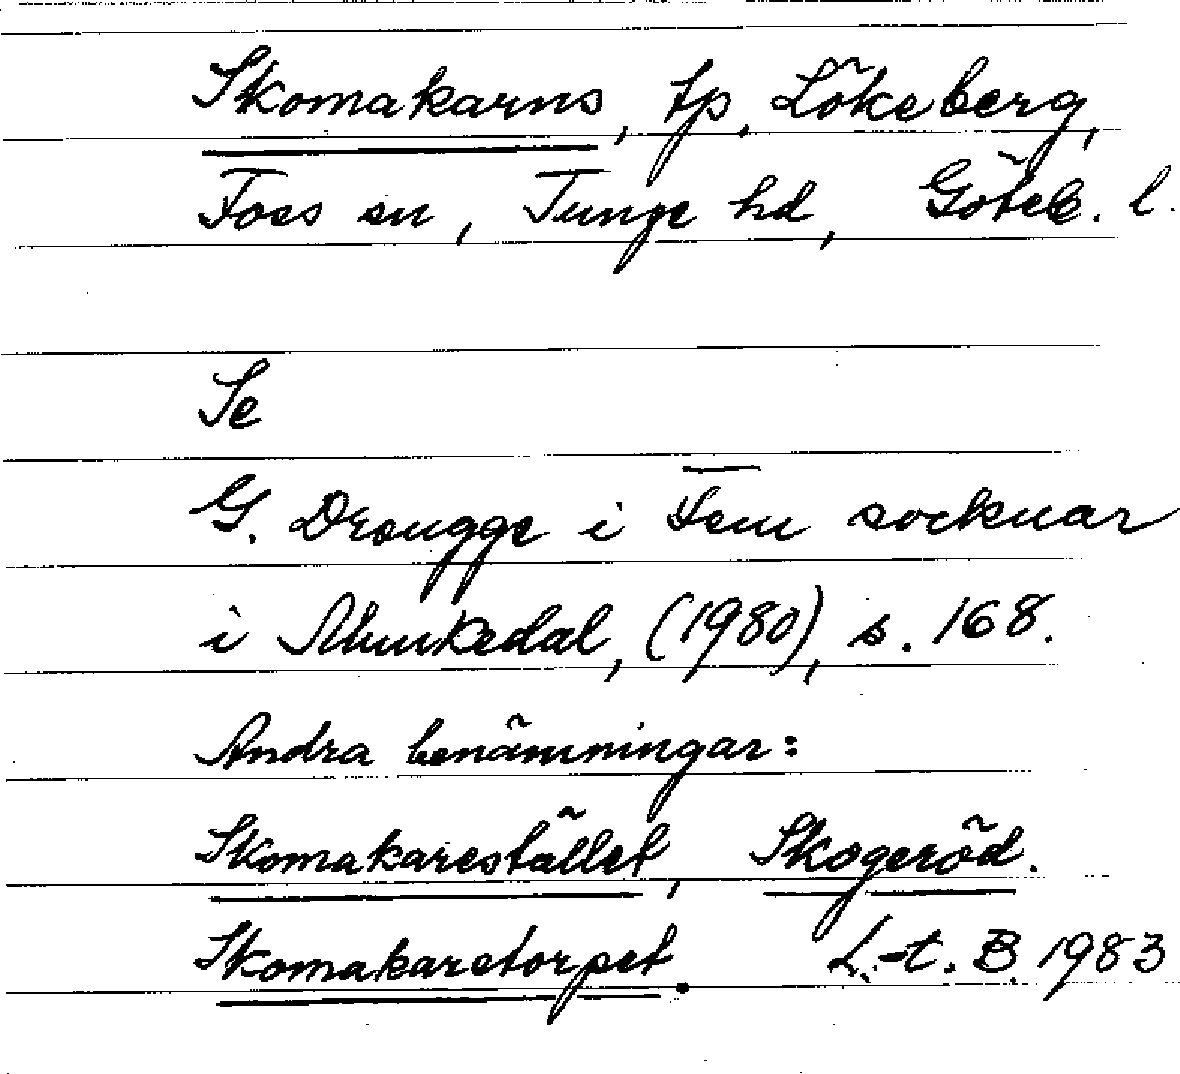 Skomakarns, tp, Lökeberg,
Foss sn, Tunge hd, Göteb. l.
Se
G. Drougge i Fem socknar
i Munkedal, (1980), s. 168.
Andra benämningar:
Skomakarestället, Skogeröd.
Skomakaretorpet. L.-t. B. 1983